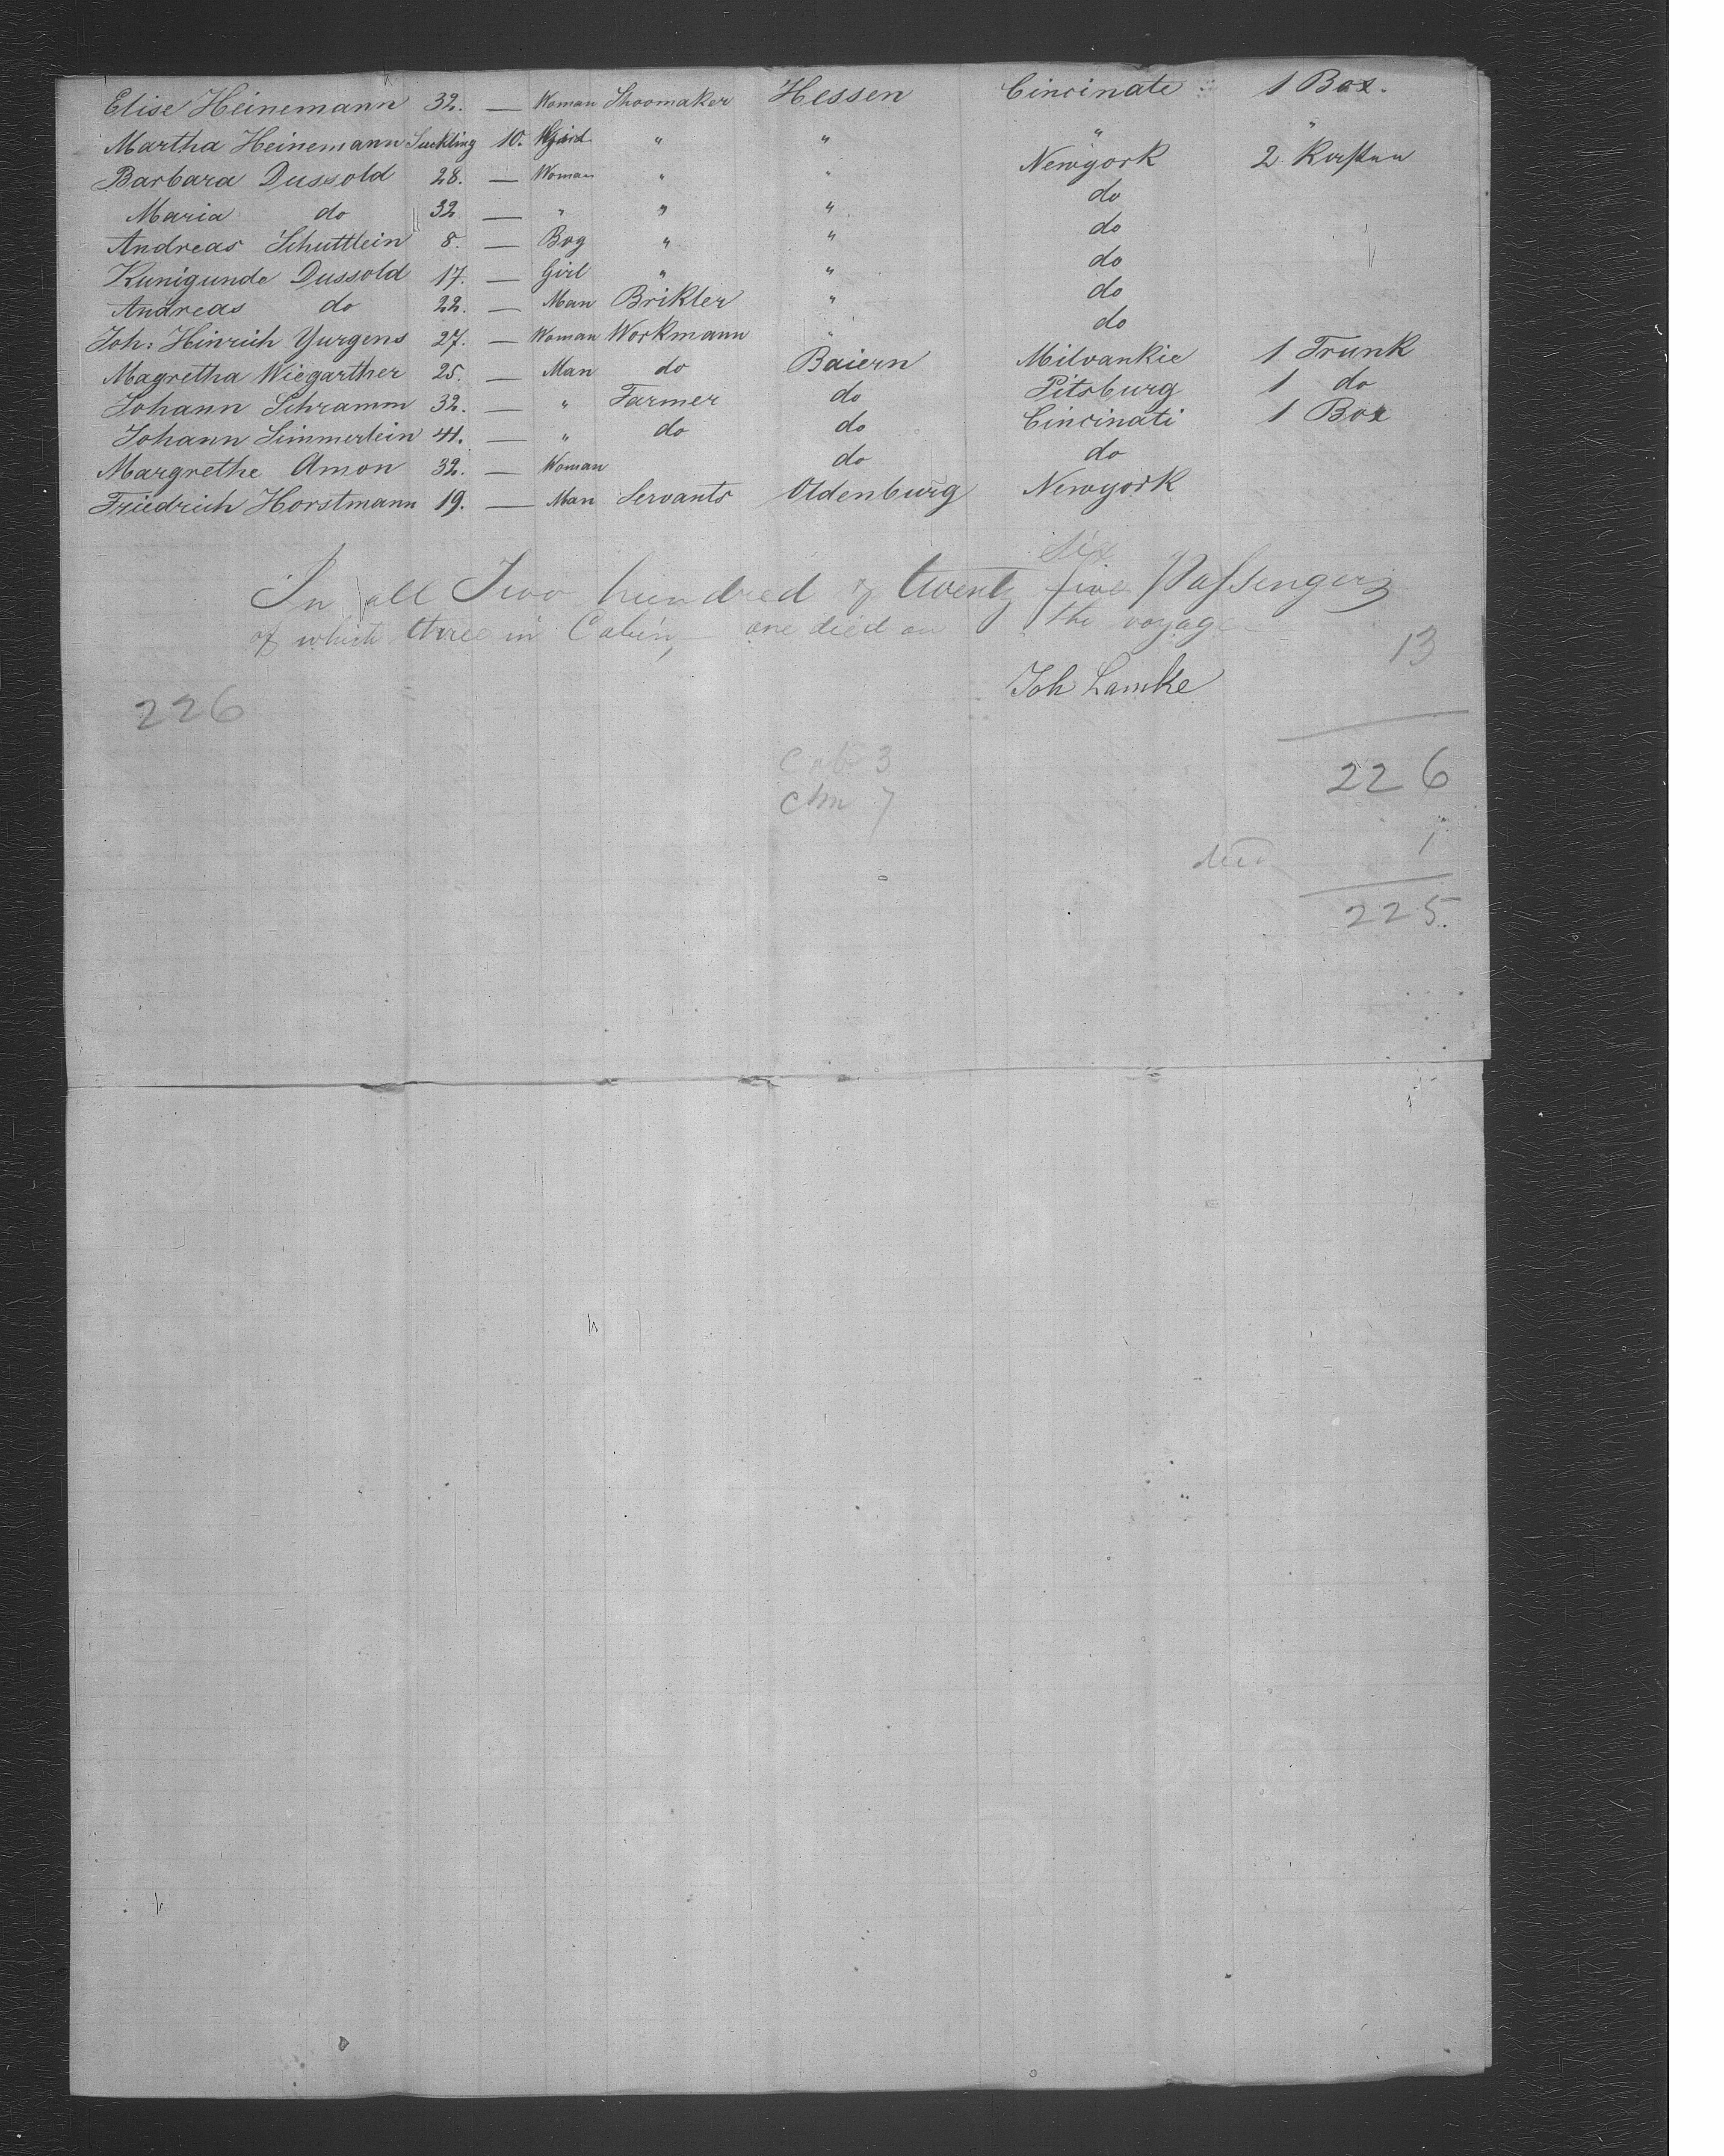 Elise Heinemann 32. — Woman Shoomaker Hessen Cincinate 1 Box.
Martha Heinemann Suckling 10. " " " "
Barbara Dussold 28. — Woman " " Newyork 2 Kasten
Maria do 32 — " " " do
Andreas Schuttlein 8. — Boy " " do
Kunigunde Dussold 17. — Girl " " do
Andreas do 22. — Man Brikler " do
Joh: Hinrich Yurgens 27. — Woman Workmann " do
Magretha Wiegarther 25. — Man do Baiern Milvankie 1 Trunk
Johann Schramm 32. — " Farmer do Pitsburg 1 do
Johann Simmerlein 41. — " do do Cincinati 1 Box
Margrethe Amon 32. — Woman do do
Friedrich Horstmann 19. — Man Servants Oldenburg Newyork
six
In all Two hundred & twenty five Passengers
of which three in Cabin, one died on the voyage
13
Joh Lamke
226
Cab 3
226
Chn 7
1
died
225.